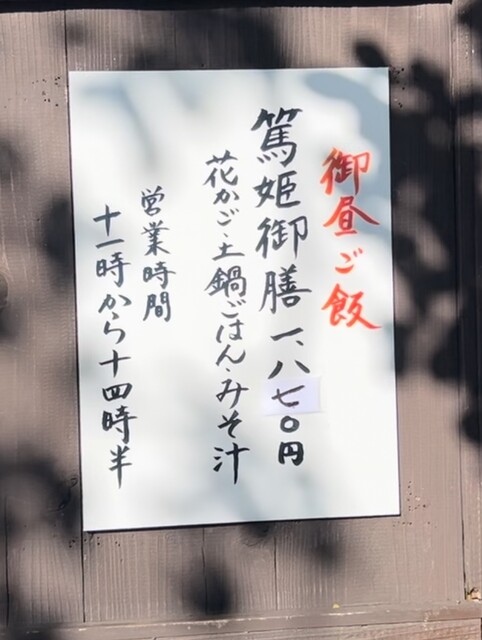 御昼ご飯
篤姫御膳 一、八七〇円
花かご・土鍋ごはん・みそ汁
営業時間
十一時から十四時半